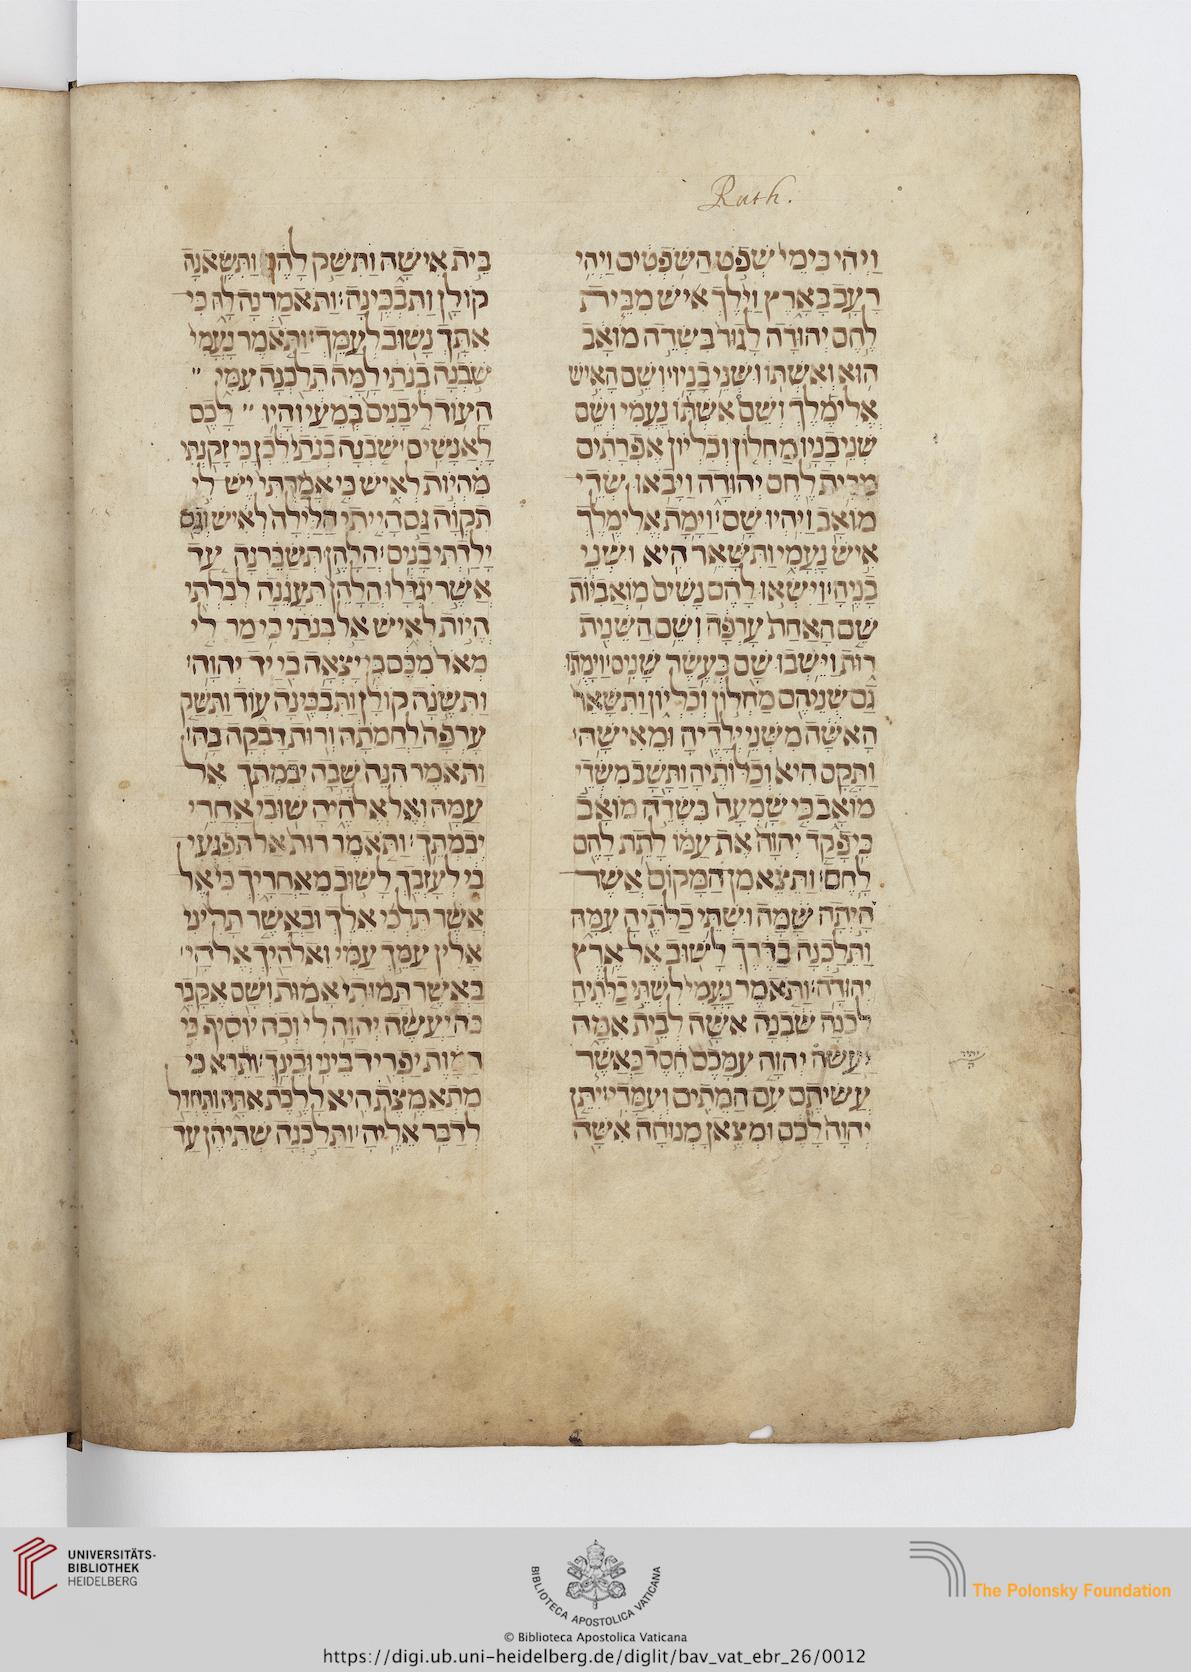 Ruth.
וַיְהִי בִּימֵי שְׁפֹט הַשֹּׁפְטִים וַיְהִי
רָעָב בָּאָרֶץ וַיֵּלֶךְ אִישׁ מִבֵּית
לֶחֶם יְהוּדָה לָגוּר בִּשְׂדֵה מוֹאָב
הוּא וְאִשְׁתּוֹ וּשְׁנֵי בָנָיו׃ וְשֵׁם הָאִישׁ
אֱלִימֶלֶךְ וְשֵׁם אִשְׁתּוֹ נָעֳמִי וְשֵׁם
שְׁנֵי בָנָיו מַחְלוֹן וְכִלְיוֹן אֶפְרָתִים
מִבֵּית לֶחֶם יְהוּדָה וַיָּבֹאוּ שְׂדֵי
מוֹאָב וַיִּהְיוּ שָׁם׃ וַיָּמָת אֱלִימֶלֶךְ
אִישׁ נָעֳמִי וַתִּשָּׁאֵר הִיא וּשְׁנֵי
בָנֶיהָ׃ וַיִּשְׂאוּ לָהֶם נָשִׁים מוֹאֲבִיּוֹת
שֵׁם הָאַחַת עָרְפָּה וְשֵׁם הַשֵּׁנִית
רוּת וַיֵּשְׁבוּ שָׁם כְּעֶשֶׂר שָׁנִים׃ וַיָּמֻתוּ
גַם שְׁנֵיהֶם מַחְלוֹן וְכִלְיוֹן וַתִּשָּׁאֵר
הָאִשָּׁה מִשְּׁנֵי יְלָדֶיהָ וּמֵאִישָׁהּ׃
וַתָּקָם הִיא וְכַלּוֹתֶיהָ וַתָּשָׁב מִשְּׂדֵי
מוֹאָב כִּי שָׁמְעָה בִּשְׂדֵה מוֹאָב
כִּי פָקַד יְהוָה אֶת עַמּוֹ לָתֵת לָהֶם
לָחֶם׃ וַתֵּצֵא מִן הַמָּקוֹם אֲשֶׁר
הָיְתָה שָׁמָּה וּשְׁתֵּי כַלֹּתֶיהָ עִמָּהּ
וַתֵּלַכְנָה בַדֶּרֶךְ לָשׁוּב אֶל אֶרֶץ
יְהוּדָה׃ וַתֹּאמֶר נָעֳמִי לִשְׁתֵּי כַלֹּתֶיהָ
לֵכְנָה שֹּׁבְנָה אִשָּׁה לְבֵית אִמָּהּ
יַעֲשֶׂה יְהוָה עִמָּכֶם חֶסֶד כַּאֲשֶׁר
עֲשִׂיתֶם עִם הַמֵּתִים וְעִמָּדִי׃ יִתֵּן
יְהוָה לָכֶם וּמְצֶאןָ מְנוּחָה אִשָּׁה
בֵּית אִישָׁהּ וַתִּשַּׁק לָהֶן וַתִּשֶּׂאנָה
קוֹלָן וַתִּבְכֶּינָה׃ וַתֹּאמַרְנָה לָּהּ כִּי
אִתָּךְ נָשׁוּב לְעַמֵּךְ׃ וַתֹּאמֶר נָעֳמִי
שֹׁבְנָה בְנֹתַי לָמָּה תֵלַכְנָה עִמִּי
הַעוֹד לִי בָנִים בְּמֵעַי וְהָיוּ לָכֶם
לַאֲנָשִׁים׃ שֹׁבְנָה בְנֹתַי לֵכְןָ כִּי זָקַנְתִּי
מִהְיוֹת לְאִישׁ כִּי אָמַרְתִּי יֶשׁ לִי
תִקְוָה גַּם הָיִיתִי הַלַּיְלָה לְאִישׁ וְגַם
יָלַדְתִּי בָנִים׃ הֲלָהֵן תְּשַׂבֵּרְנָה עַד
אֲשֶׁר יִגְדָּלוּ הֲלָהֵן תֵּעָגֵנָה לְבִלְתִּי
הֱיוֹת לְאִישׁ אַל בְּנֹתַי כִּי מַר לִי
מְאֹד מִכֶּם כִּי יָצְאָה בִי יַד יְהוָה׃
וַתִּשֶּׂנָה קוֹלָן וַתִּבְכֶּינָה עוֹד וַתִּשַּׁק
עָרְפָּה לַחֲמֹתָהּ וְרוּת דָּבְקָה בָּהּ׃
וַתֹּאמֶר הִנֵּה שָׁבָה יְבִמְתֵּךְ אֶל
עַמָּהּ וְאֶל אֱלֹהֶיהָ שׁוּבִי אַחֲרֵי
יְבִמְתֵּךְ׃ וַתֹּאמֶר רוּת אַל תִּפְגְּעִי
בִי לְעָזְבֵךְ לָשׁוּב מֵאַחֲרָיִךְ כִּי אֶל
אֲשֶׁר תֵּלְכִי אֵלֵךְ וּבַאֲשֶׁר תָּלִינִי
אָלִין עַמֵּךְ עַמִּי וֵאלֹהַיִךְ אֱלֹהָי׃
בַּאֲשֶׁר תָּמוּתִי אָמוּת וְשָׁם אֶקָּבֵר
כֹּה יַעֲשֶׂה יְהוָה לִי וְכֹה יוֹסִיף כִּי
הַמָּוֶת יַפְרִיד בֵּינִי וּבֵינֵךְ׃ וַתֵּרֶא כִּי
מִתְאַמֶּצֶת הִיא לָלֶכֶת אִתָּהּ וַתֶּחְדַּל
לְדַבֵּר אֵלֶיהָ׃ וַתֵּלַכְנָה שְׁתֵּיהֶן עַד
UNIVERSITÄTS-
BIBLIOTHEK
HEIDELBERG
BIBLIOTECA APOSTOLICA VATICANA
The Polonsky Foundation
© Biblioteca Apostolica Vaticana
https://digi.ub.uni-heidelberg.de/diglit/bav_vat_ebr_26/0012